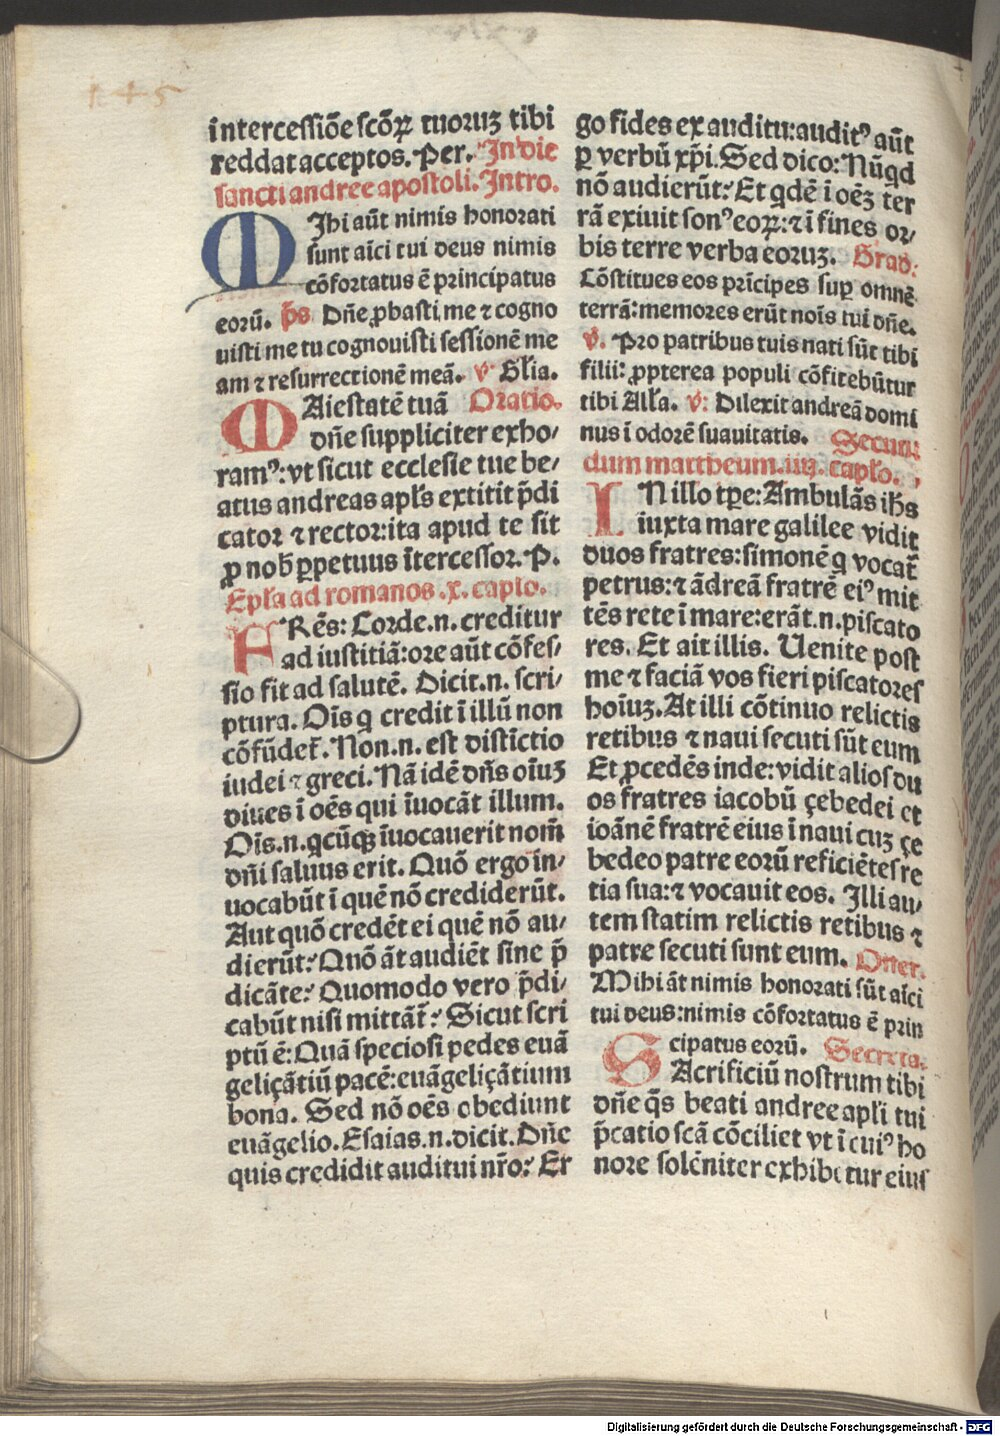 intercessiōe scōꝝ tuoruꝫ tibi
reddat acceptos. Per. In die
sancti andree apostoli. Intro.
MIhi aūt nimis honorati
sunt aīci tui deus nimis
cōfortatus ē principatus
eorū. p̄s Dn̄e ꝓbasti me ⁊ cogno
uisti me tu cognouisti sessionē me
am ⁊ resurrectionē meā. v̄ Gl̄ia.
MAiestatē tuā Oratio.
dn̄e suppliciter exho/
ramꝰ: vt sicut ecclesie tue be/
atus andreas apl̄s extitit p̄di
cator ⁊ rector: ita apud te sit
ꝓ nob̄ ꝑpetuus ītercessor. P.
Epl̄a ad romanos .x. capl̄o.
FRēs: Corde .n. creditur
ad iustitiā: ore aūt cōfes/
sio fit ad salutē. Dicit .n. scri/
ptura. Oīs q credit ī illū non
cōfūdet̄. Non .n. est distīctio
iudei ⁊ greci. Nā idē dn̄s oīuꝫ
diues ī oēs qui īuocāt illum.
Oīs .n. qcūqꝫ īuocauerit nom̄
dn̄i saluus erit. Quō ergo in/
uocabūt ī quē nō crediderūt.
Aut quō credēt ei quē nō au/
dierūt: Quō āt audiēt sine p̄
dicāte: Quomodo vero p̄di/
cabūt nisi mittāt̄: Sicut scri
ptū ē: Quā speciosi pedes euā
geliçātiū pacē: euāgeliçātium
bona. Sed nō oēs obediunt
euāgelio. Esaias .n. dicit. Dn̄e
quis credidit auditui nr̄o: Er
go fides ex auditu: auditꝰ aūt
ꝑ verbū xp̄i. Sed dico: Nūqd
nō audierūt: Et qdē ī oēꝫ ter
rā exiuit sonꝰ eoꝝ: ⁊ ī fines or/
bis terre verba eoruꝫ. Grad:
Cōstitues eos prīcipes suꝑ omnē
terrā: memores erūt noīs tui dn̄e.
v̄. Pro patribus tuis nati sūt tibi
filii: ꝓpterea populi cōfitebūtur
tibi All̄a. v̄: Dilexit andreā domi
nus ī odorē suauitatis. Secun
dum mattheum. iiij. capl̄o.
IN illo tꝑe: Ambulās ih̄s
iuxta mare galilee vidit
duos fratres: simonē q vocat̄
petrus: ⁊ ādreā fratrē eiꝰ mit
tēs rete ī mare: erāt .n. piscato
res. Et ait illis. Uenite post
me ⁊ faciā vos fieri piscatores
hoīuꝫ. At illi cōtinuo relictis
retibus ⁊ naui secuti sūt eum
Et ꝓcedēs inde: vidit alios du
os fratres iacobū çebedei et
ioānē fratrē eius ī naui cuꝫ çe
bedeo patre eorū reficiētes re
tia sua: ⁊ vocauit eos. Illi au/
tem statim relictis retibus ⁊
patre secuti sunt eum. Offer.
Mihi āt nimis honorati sūt aīci
tui deus: nimis cōfortatus ē prin
cipatus eorū. Secreta.
SAcrificiū nostrum tibi
dn̄e qs̄ beati andree apl̄i tui
p̄catio scā cōciliet vt ī cuiꝰ ho
nore solēniter exhibetur eius
Digitalisierung gefördert durch die Deutsche Forschungsgemeinschaft - DFG